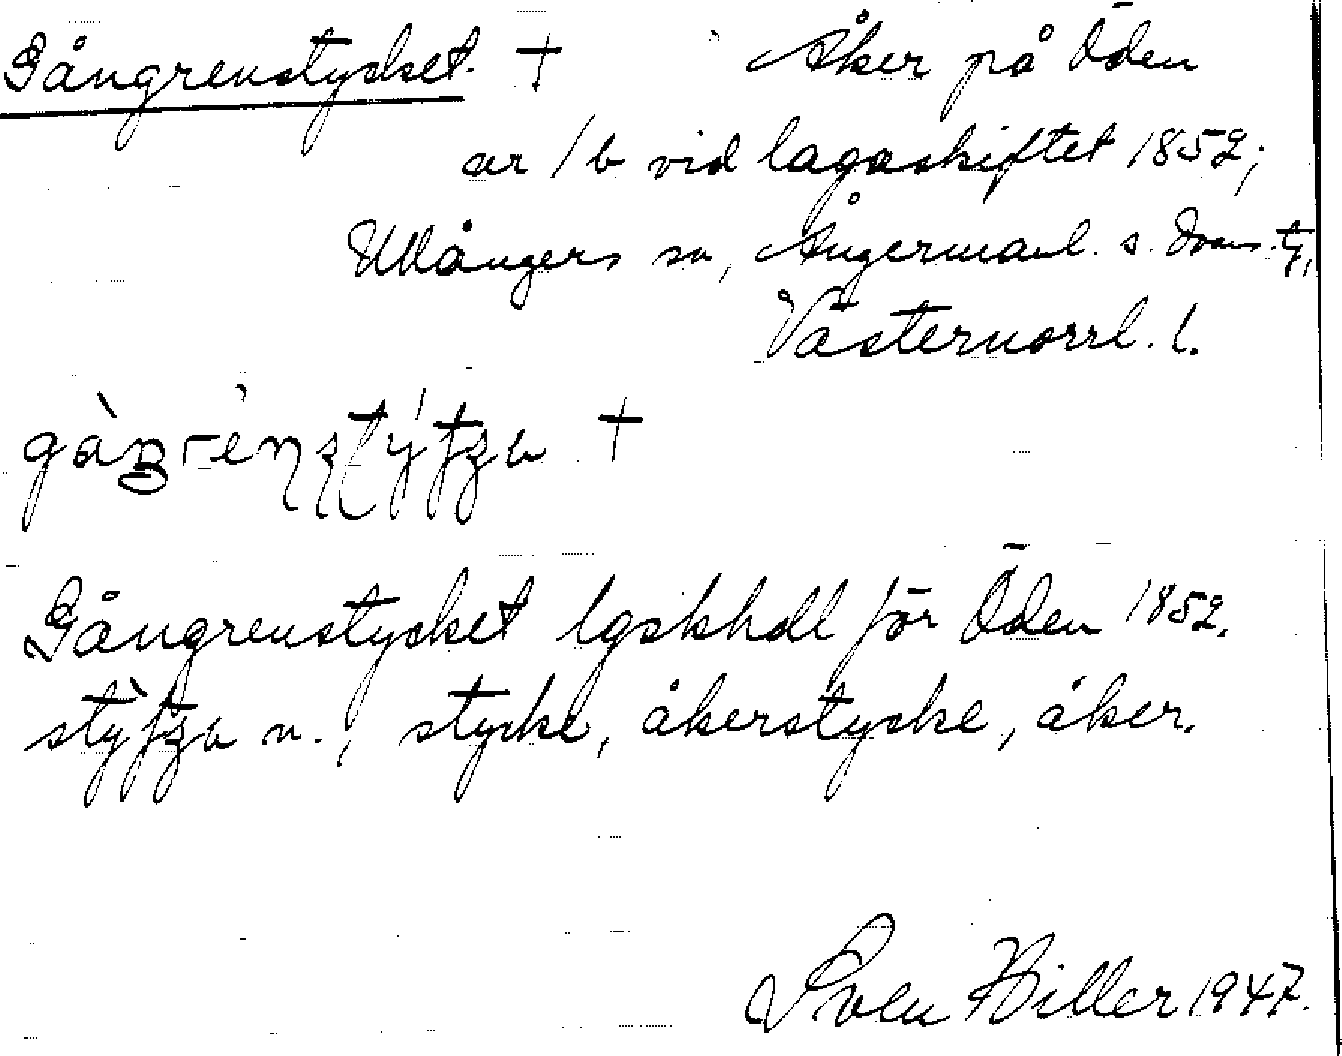 Gångrenstycket. † Åker på Öden
av 1b vid lagaskiftet 1852;
Ullångers sn, Ångermanl. s. doms. tg,
Västernorrl. l.
†
Gångrenstycket lgskhdl för Öden 1852.
n., stycke, åkerstycke, åker.
Sven Hiller 1947.